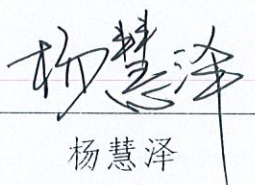 杨慧泽
杨慧泽